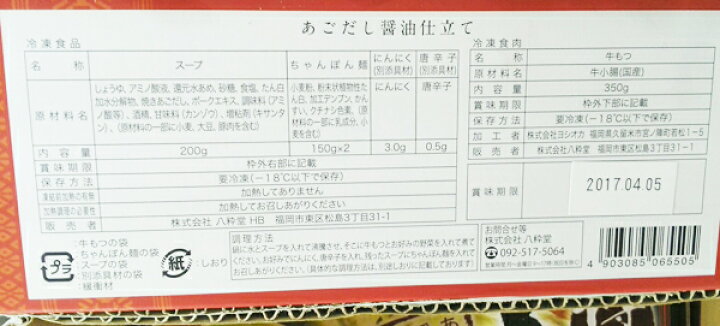 あごだし醤油仕立て
冷凍食品
名 称 スープ ちゃんぽん麺 にんにく(別添具材) 唐辛子(別添具材)
原材料名
しょうゆ、アミノ酸液、還元水あめ、砂糖、食塩、たん白
加水分解物、焼きあごだし、ポークエキス、調味料(アミ
ノ酸等)、酒精、甘味料(カンゾウ)、増粘剤(キサンタ
ン)、(原材料の一部に小麦、大豆、豚肉を含む)
小麦粉、粉末状植物性た
ん白、加工デンプン、かん
すい、クチナシ色素、(原
材料の一部に乳成分、小
麦を含む)
にんにく
唐辛子
内 容 量 200g 150g×2 3.0g 0.5g
賞味期限 枠外右部に記載
保存方法 要冷凍(−18℃以下で保存)
凍結前加熱の有無 加熱してありません
加熱調理の必要性 加熱してお召しあがりください
販 売 者 株式会社 八粋堂 HB 福岡市東区松島3丁目31-1
冷凍食肉
名 称 牛もつ
原材料名 牛小腸(国産)
内 容 量 350g
賞味期限 枠外下部に記載
保存方法 要冷凍(−18℃以下で保存)
加 工 者 株式会社ヨシオカ 福岡県久留米市宮ノ陣町若松1−5
販 売 者 株式会社八粋堂 福岡市東区松島3丁目31−1
賞味期限 2017.04.05
プラ
:牛もつの袋
ちゃんぽん麺の袋
スープの袋
別添具材の袋
:緩衝材
紙
:しおり
調理方法
鍋に水とスープを入れて沸騰させ、そこに牛もつとお好みの野菜を入れて煮て
ください。お好みでにんにく、唐辛子を入れ、残ったスープにちゃんぽん麺を入れて
お召しあがりください。(具体的な調理方法は、別途しおりに記載しています。)
お問合せ等
株式会社 八粋堂
092-517-5064
4 903085 065505